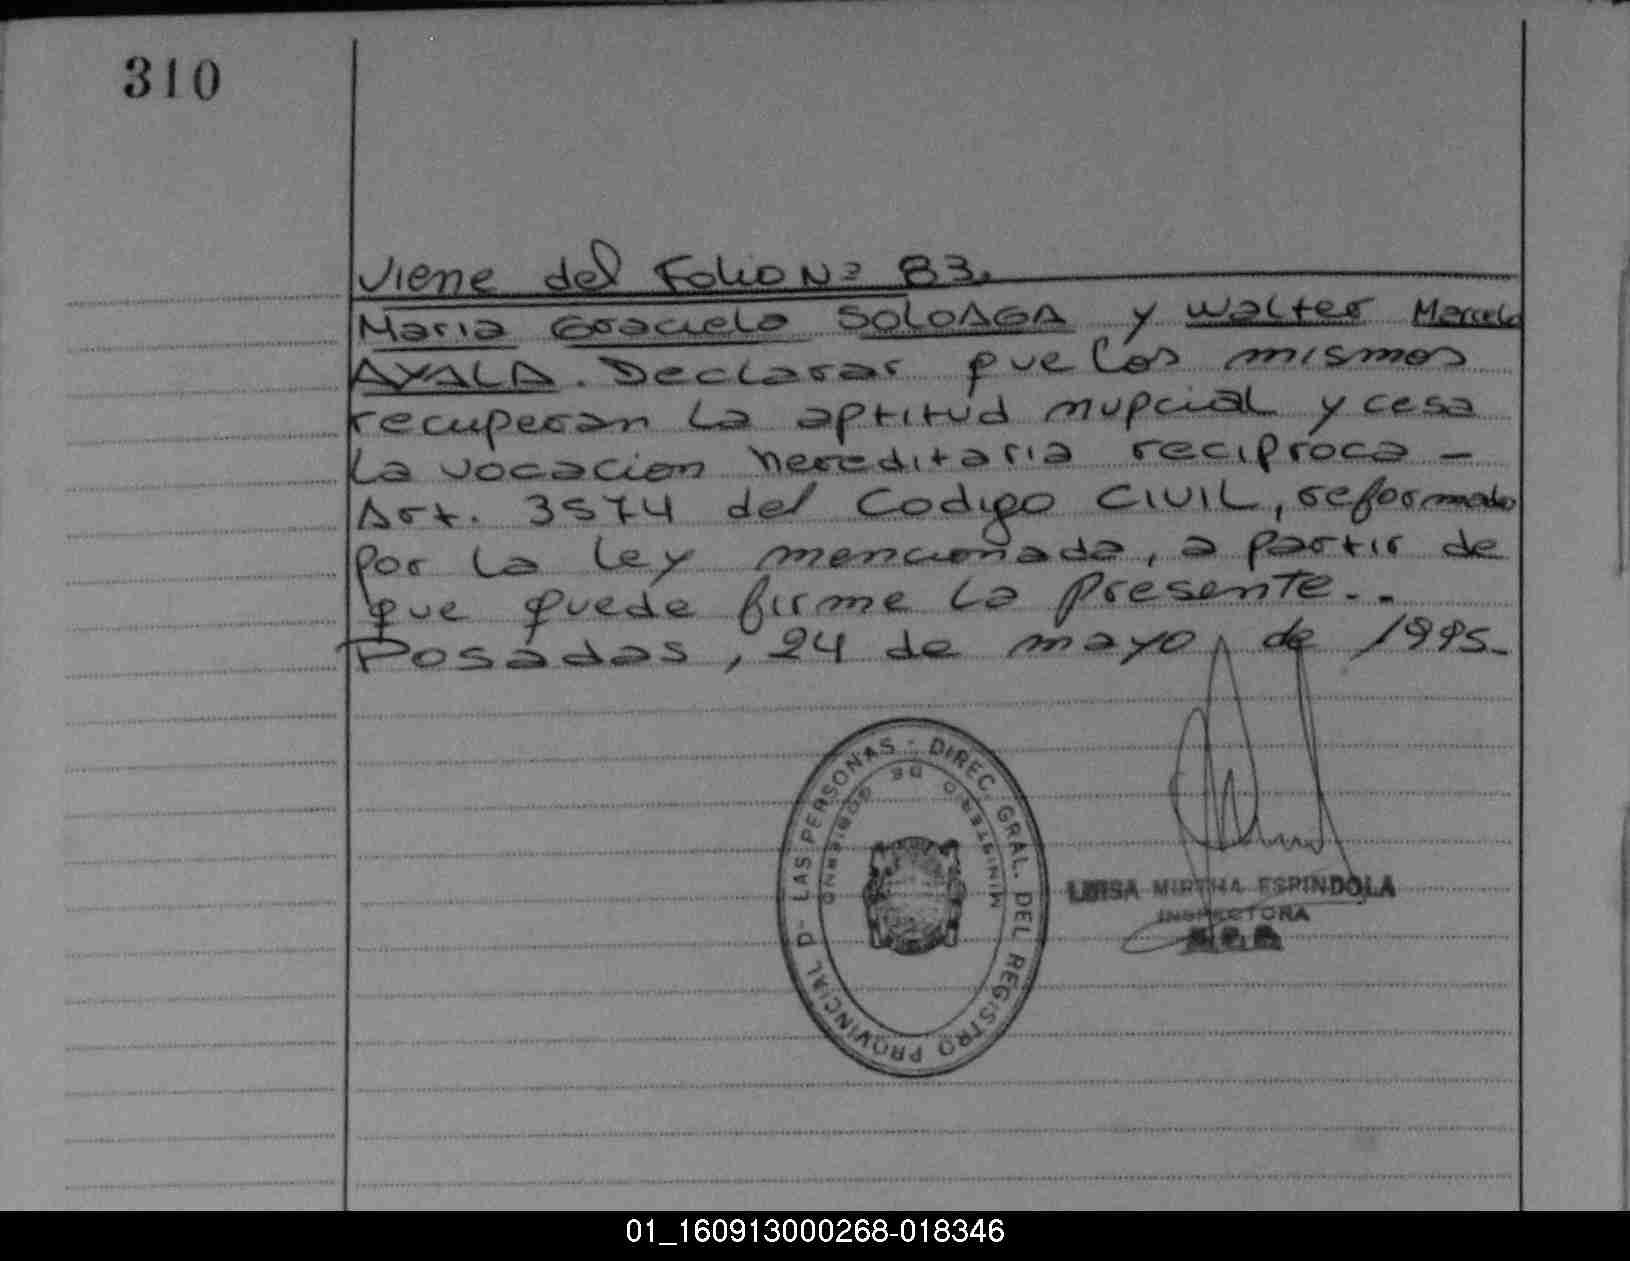 310
Viene del Folio Nº 83.
Maria Graciela SOLOAGA y Walter Marcelo
AYALA. Declarar que los mismos
recuperan la aptitud nupcial y cesa
la vocacion hereditaria reciproca –
Art. 3574 del Codigo CIVIL, reformado
por la ley mencionada, a partir de
que quede firme la presente..
Posadas, 24 de mayo de 1995.
DIREC. GRAL. DEL REGISTRO PROVINCIAL D- LAS PERSONAS -
MINISTERIO DE GOBIERNO
LUISA MIRTHA ESPINDOLA
INSPECTORA
01_160913000268-018346